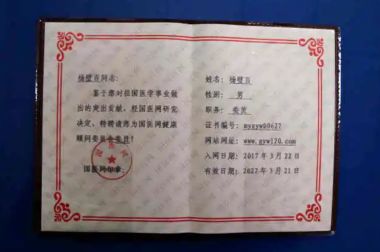 杨壁直同志:
鉴于你对径国医学事业做
出的突出贡献，经国医网研究
决定，特聘请您为国医网健康
顾问委员会委员!
国医网印章:
姓名: 杨壁直
性别: 男
职务: 委员
证书编号: mygyw00627
网站网址: www.gyw120.com
入网日期: 2017年3月22日
有效日期: 2022年3月21日